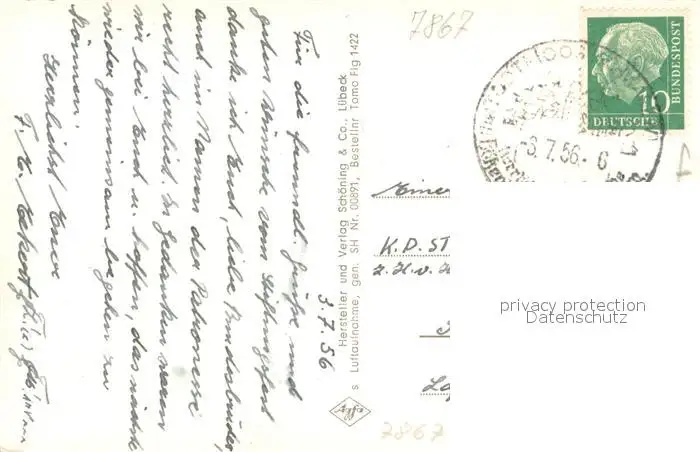 7867
3.7.56
Für die freundl. Grüße und
guten Wünsche vom Stiftungsfest
danke ich Euch, liebe Bundesbrüder,
auch im Namen der Patronesse
recht herzlich. In Gedanken waren
wir bei Euch u. hoffen, das nächste
wieder gemeinsam begehen zu
können.
Herzlichst Euer
Hersteller und Verlag Schöning & Co., Lübeck
s Luftaufnahme, gen. SH Nr. 00891, Bestellnr Tomo Flg 1422
Agfa
DEUTSCHE
BUNDESPOST
10
-3.7.56.-6
K.D.ST
z.H.v.H
privacy protection
Datenschutz
7867